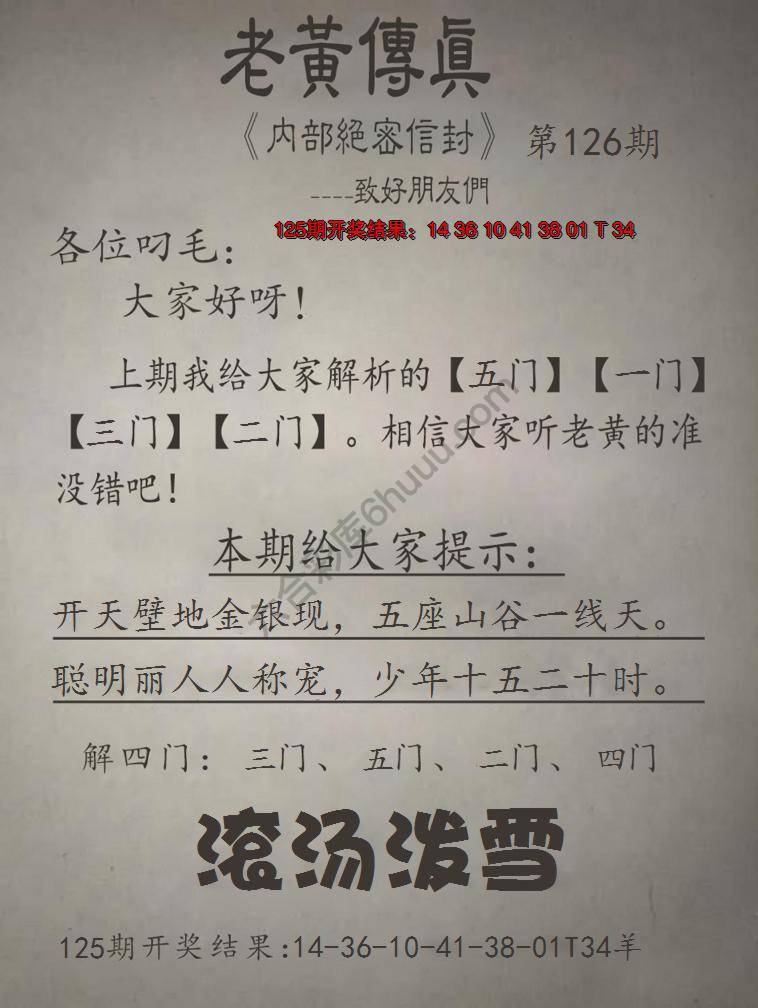 老黃傳真
《內部絕密信封》 第126期
----致好朋友們
125期开奖结果：14 36 10 41 38 01 T 34
各位叼毛：
大家好呀！
上期我给大家解析的【五门】【一门】
【三门】【二门】。相信大家听老黄的准
没错吧！
本期给大家提示：
开天壁地金银现，五座山谷一线天。
聪明丽人人称宠，少年十五二十时。
解四门：三门、五门、二门、四门
滚汤泼雪
125期开奖结果:14-36-10-41-38-01T34羊
六合彩库6huuu.com